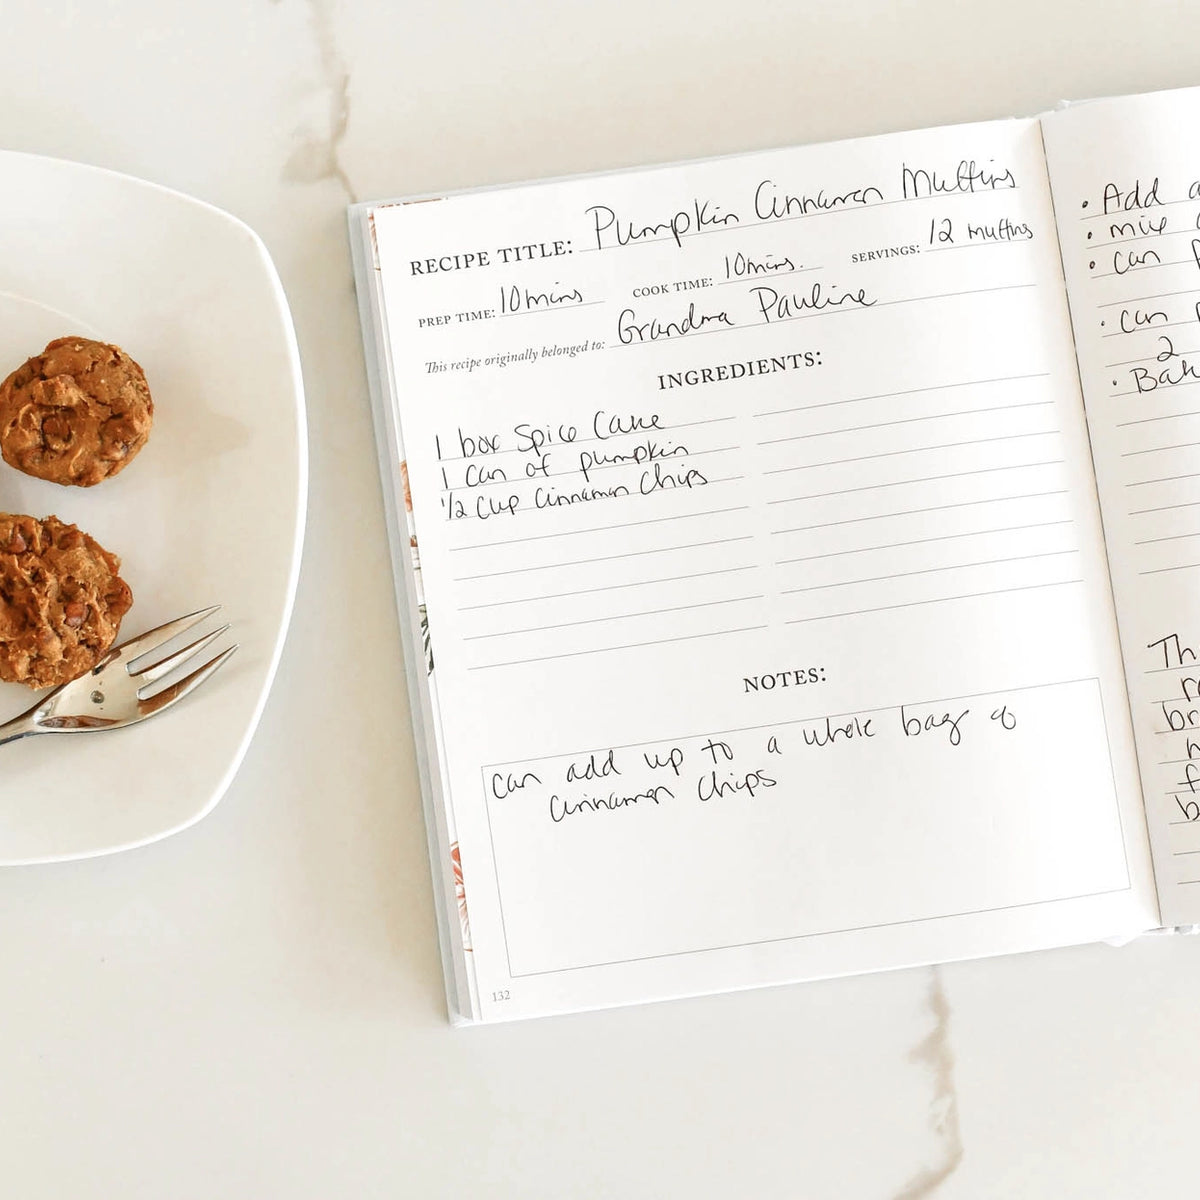 RECIPE TITLE: Pumpkin Cinnamon Muffins
PREP TIME: 10 mins COOK TIME: 10 mins. SERVINGS: 12 muffins
This recipe originally belonged to: Grandma Pauline
INGREDIENTS:
1 box Spice Cake
1 Can of pumpkin
1/2 Cup Cinnamon Chips
NOTES:
can add up to a whole bag of
cinnamon chips
132
• Add a
• mix
• can
• can
2
• Bak
Th
br